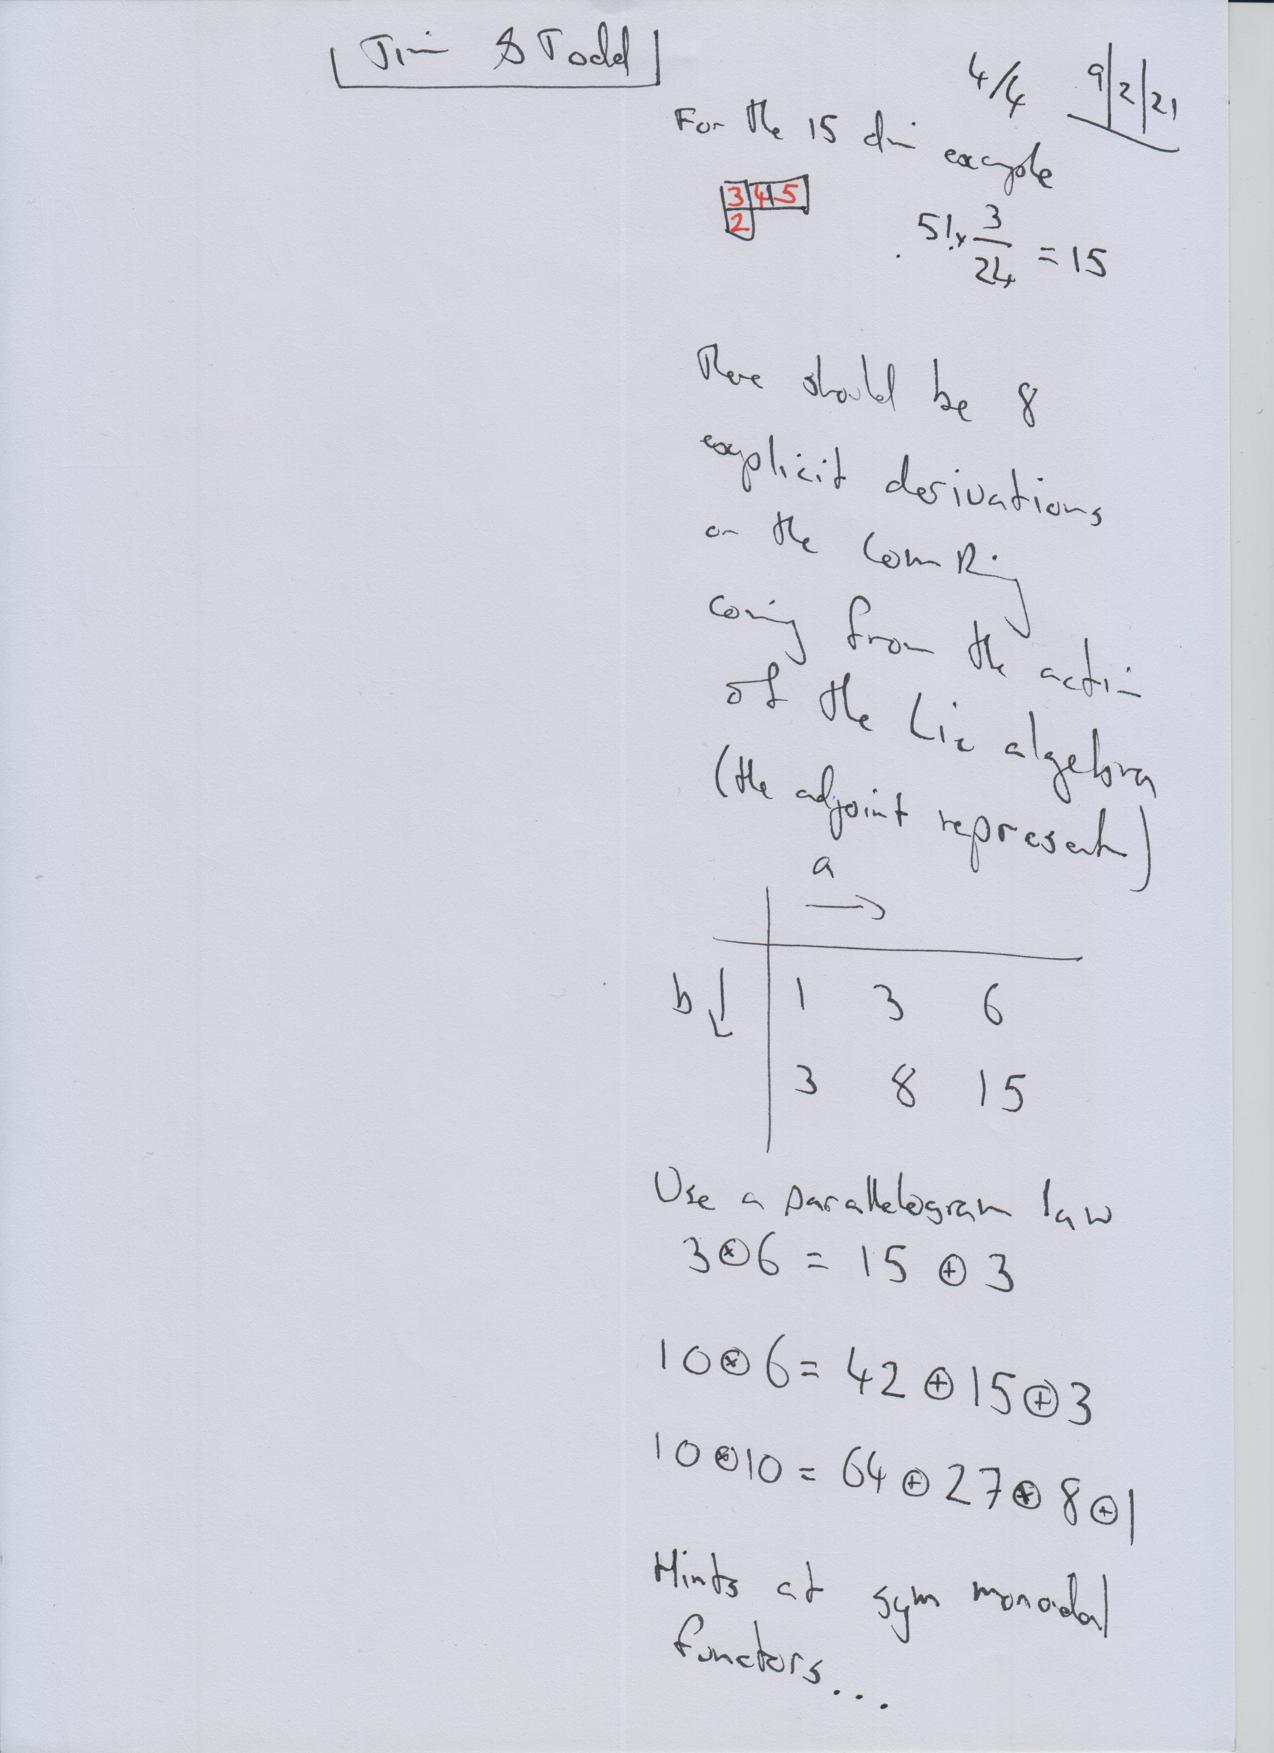 Jim & Todd
4/4 9/2/21
For the 15 dim example
3 4 5
2
5! × 3/24 = 15
There should be 8
explicit derivations
on the Com Ring
coming from the action
of the Lie algebra
(the adjoint represent)
a →
b ↓ 1 3 6
3 8 15
Use a parallelogram law
3 ⊗ 6 = 15 ⊕ 3
10 ⊗ 6 = 42 ⊕ 15 ⊕ 3
10 ⊗ 10 = 64 ⊕ 27 ⊕ 8 ⊕ 1
Hints at sym monoidal
functors...